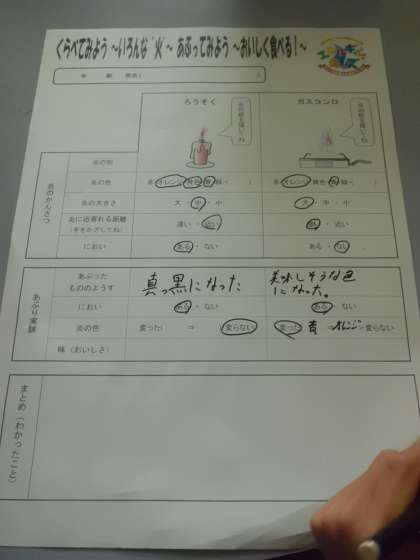 くらべてみよう ～いろんな"火"～ あぶってみよう ～おいしく食べる！～
年 組 班名( )
ろうそく ガスコンロ
炎の絵を描いてね
炎の絵を描いてね
炎のかんさつ
炎の形
炎の色 赤・オレンジ・黄色・青・緑・( ) 赤・オレンジ・黄色・青・緑・( )
炎の大きさ 大・中・小 大・中・小
炎に近寄れる距離 遠い・近い 遠い・近い
(手をかざしてね)
におい ある・ない ある・ない
あぶり実験
あぶった
もののようす 真っ黒になった 美味しそうな色
になった。
におい ある・ない ある・ない
炎の色 変った( ⇒ )変らない 変った 青 ⇒ オレンジ 変らない
味(おいしさ)
まとめ(わかったこと)